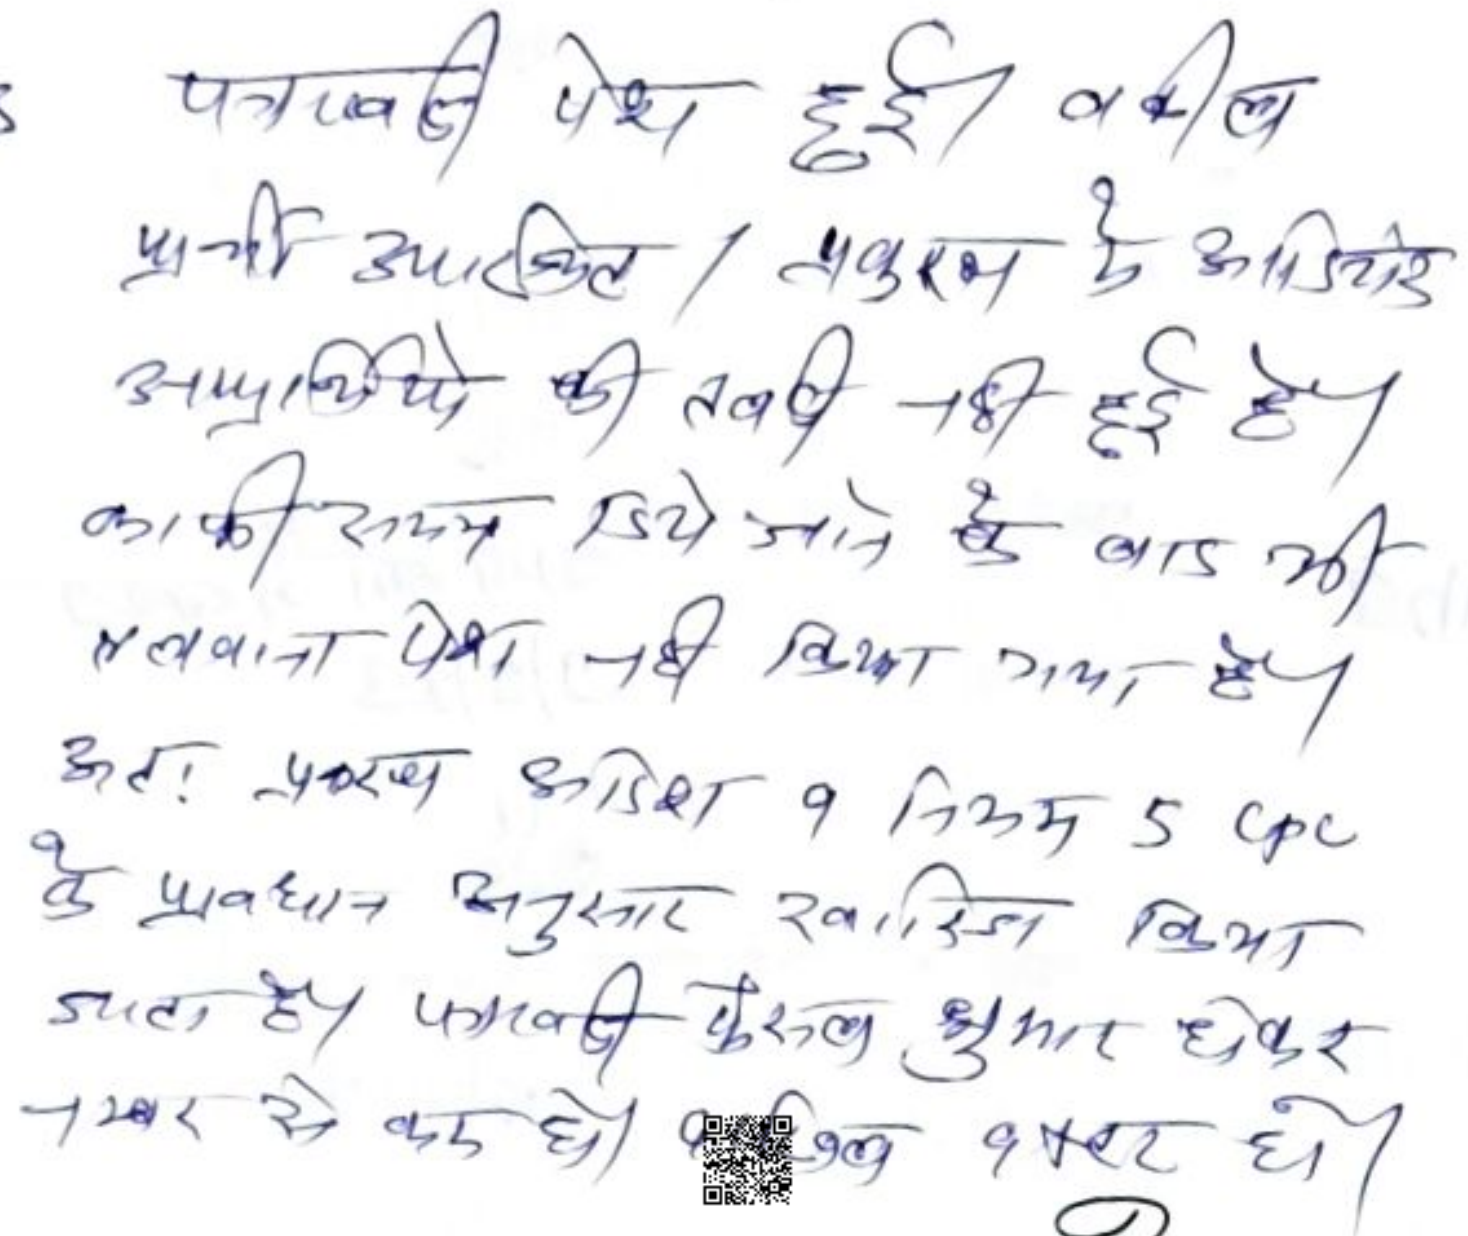 पत्रावली पेश हुई। वकील
प्रार्थी उपस्थित। प्रकरण के
अप्रार्थियो की तलबी नही हुई है।
काफी समय दिये जाने के बाद भी
तलवाना पेश नही किया गया है।
अतः प्रकरण आदेश 9 नियम 5 CPC
के प्रावधान अनुसार खारिज किया
जाता है। पत्रावली फैसल शुमार होकर
नम्बर से कम हो। दाखिल दफ्तर हो।